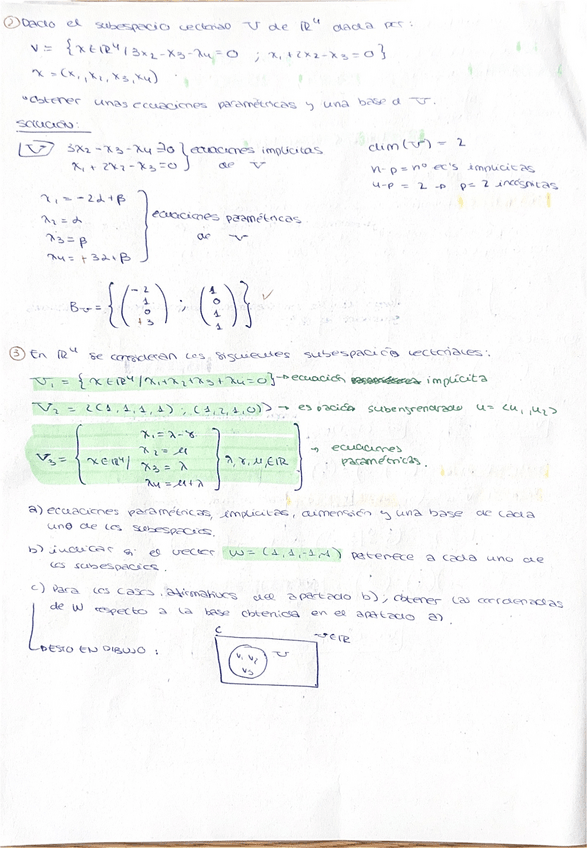 ② Dado el subespacio vectorial V de ℝ⁴ dada por:
V = {x∈ℝ⁴/3x₂-x₃-x₄=0 ; x₁+2x₂-x₃=0}
x=(x₁,x₂,x₃,x₄)
*obtener unas ecuaciones paramétricas y una base d V.
Solución:
V 3x₂-x₃-x₄=0 } ecuaciones implícitas dim(V) = 2
x₁+2x₂-x₃=0 } de V n-p=nº ec's implícitas
4-p=2 → p=2 incógnitas
x₁=-2α+β
x₂=α ecuaciones paramétricas
x₃=β de V
x₄=+3α+β
Bv={(-2 1 0 +3) ; (1 0 1 1)} ✓
③ En ℝ⁴ se consideran los siguientes subespacios vectoriales:
V₁={x∈ℝ⁴/x₁+x₂+x₃+x₄=0} → ecuación implícita
V₂=<(1,1,1,1) ; (1,2,1,0)> → espacio subengendrado u=<u₁,u₂>
x₁=λ-γ
x₂=μ → ecuaciones
V₃={x∈ℝ⁴/ x₃=λ } λ,γ,μ∈ℝ} paramétricas.
x₄=μ+λ
a) ecuaciones paramétricas, implícitas, dimensión y una base de cada
uno de los subespacios.
b) indicar si el vector W=(1,1,-1,-1) petenece a cada uno de
los subespacios.
c) Para los casos afirmativos del apartado b), obtener las coordenadas
de W respecto a la base obtenida en el apartado a).
C V∈ℝ
ESTO EN DIBUJO : V₁ V₂ V₃ V